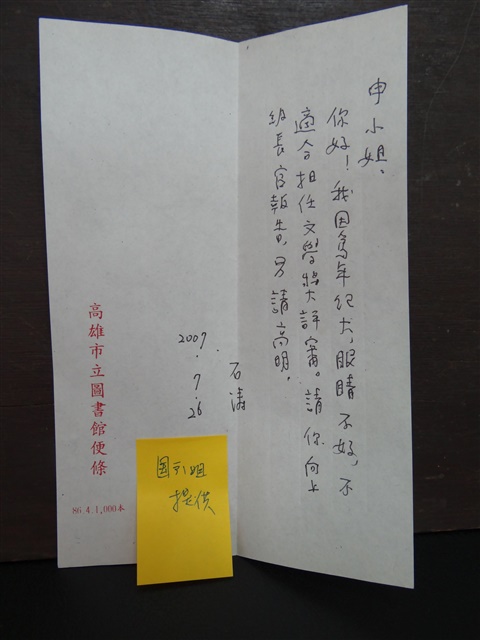 申小姐、
你好！我因為年紀大，眼睛不好，不
適合担任文學奖大評審。請你向上
級長官報告，另請高明。
石濤
2007.7.26
高雄市立圖書館便條
86.4.1,000本
姐
提供